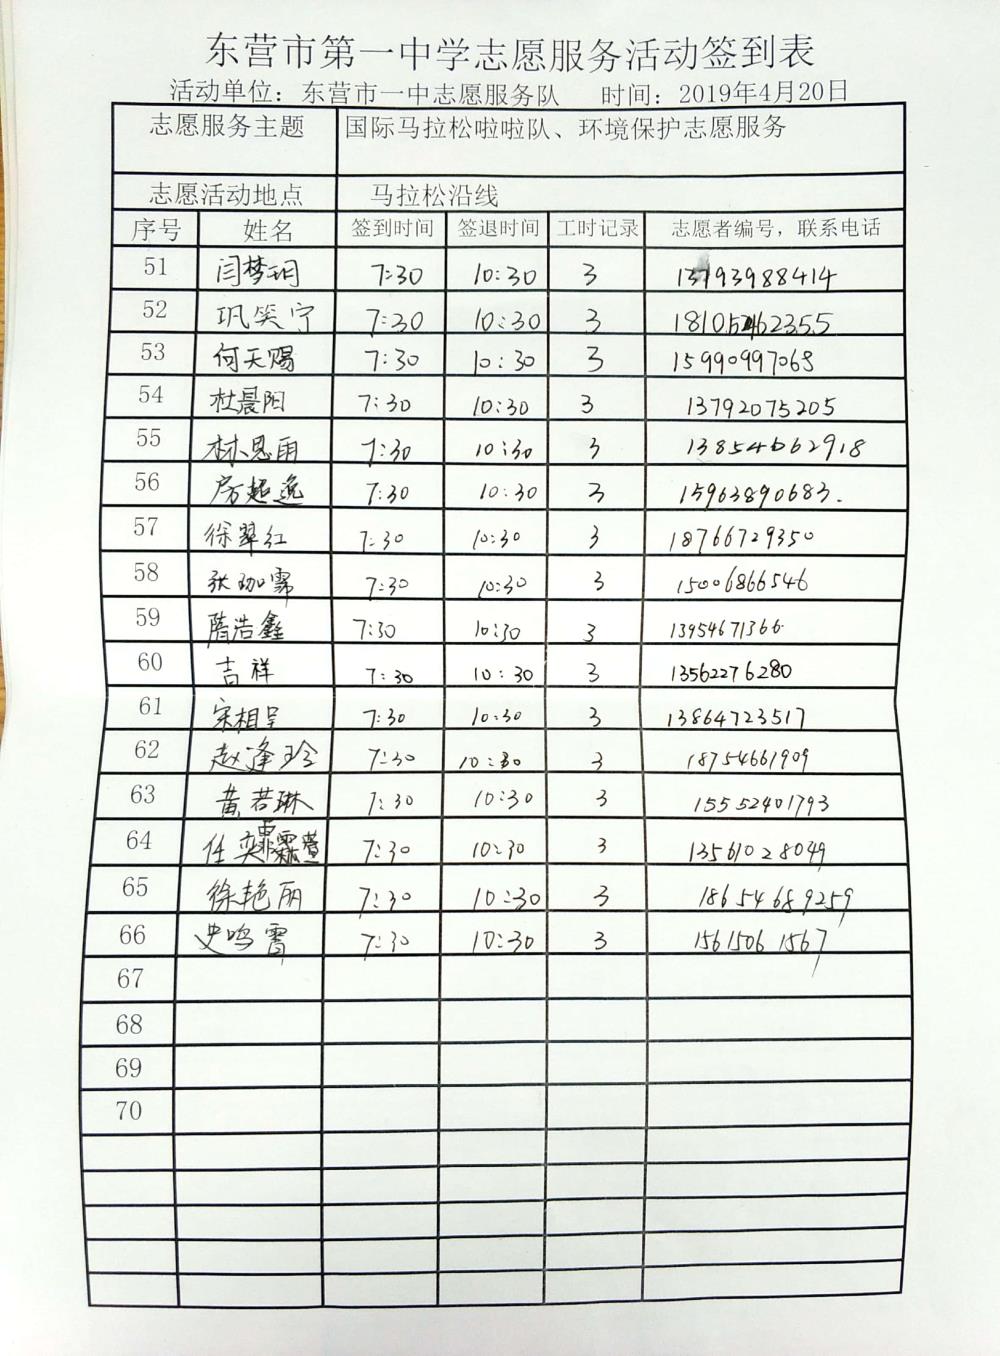 东营市第一中学志愿服务活动签到表
活动单位：东营市一中志愿服务队 时间：2019年4月20日
志愿服务主题 国际马拉松啦啦队、环境保护志愿服务
志愿活动地点 马拉松沿线
序号 姓名 签到时间 签退时间 工时记录 志愿者编号，联系电话
51 闫梦玥 7:30 10:30 3 13793988414
52 巩笑宁 7:30 10:30 3 18105462355
53 何天赐 7:30 10:30 3 15990997068
54 杜晨阳 7:30 10:30 3 13792075205
55 林思雨 7:30 10:30 3 13854662918
56 房超逸 7:30 10:30 3 15963890683.
57 徐翠红 7:30 10:30 3 18766729350
58 张珈霈 7:30 10:30 3 15006866546
59 隋浩鑫 7:30 10:30 3 13954671366
60 吉祥 7:30 10:30 3 13562276280
61 宋相呈 7:30 10:30 3 13864723517
62 赵逢玲 7:30 10:30 3 18754661909
63 黄若琳 7:30 10:30 3 15552401793
64 任奕霏 7:30 10:30 3 13561028049
65 徐艳丽 7:30 10:30 3 18654689259
66 史鸣霄 7:30 10:30 3 15615061567
67
68
69
70